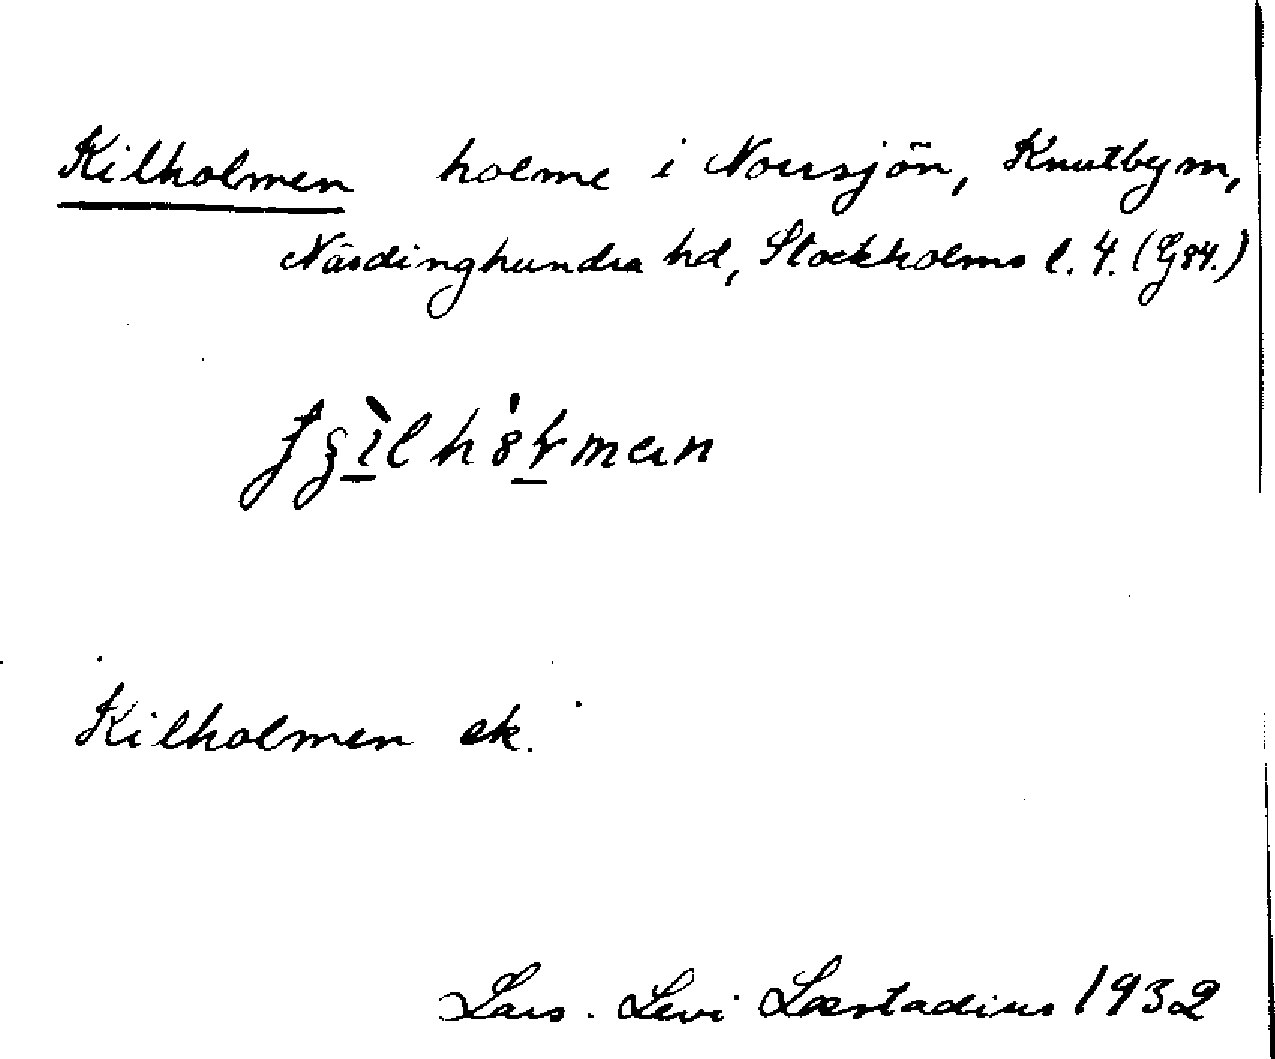 Kilholmen holme i Norrsjön, Knutby sn,
Närdinghundra hd, Stockholms l. 4. (G 84.)
Kilholmen ek.
Lars. Levi Læstadius 1932